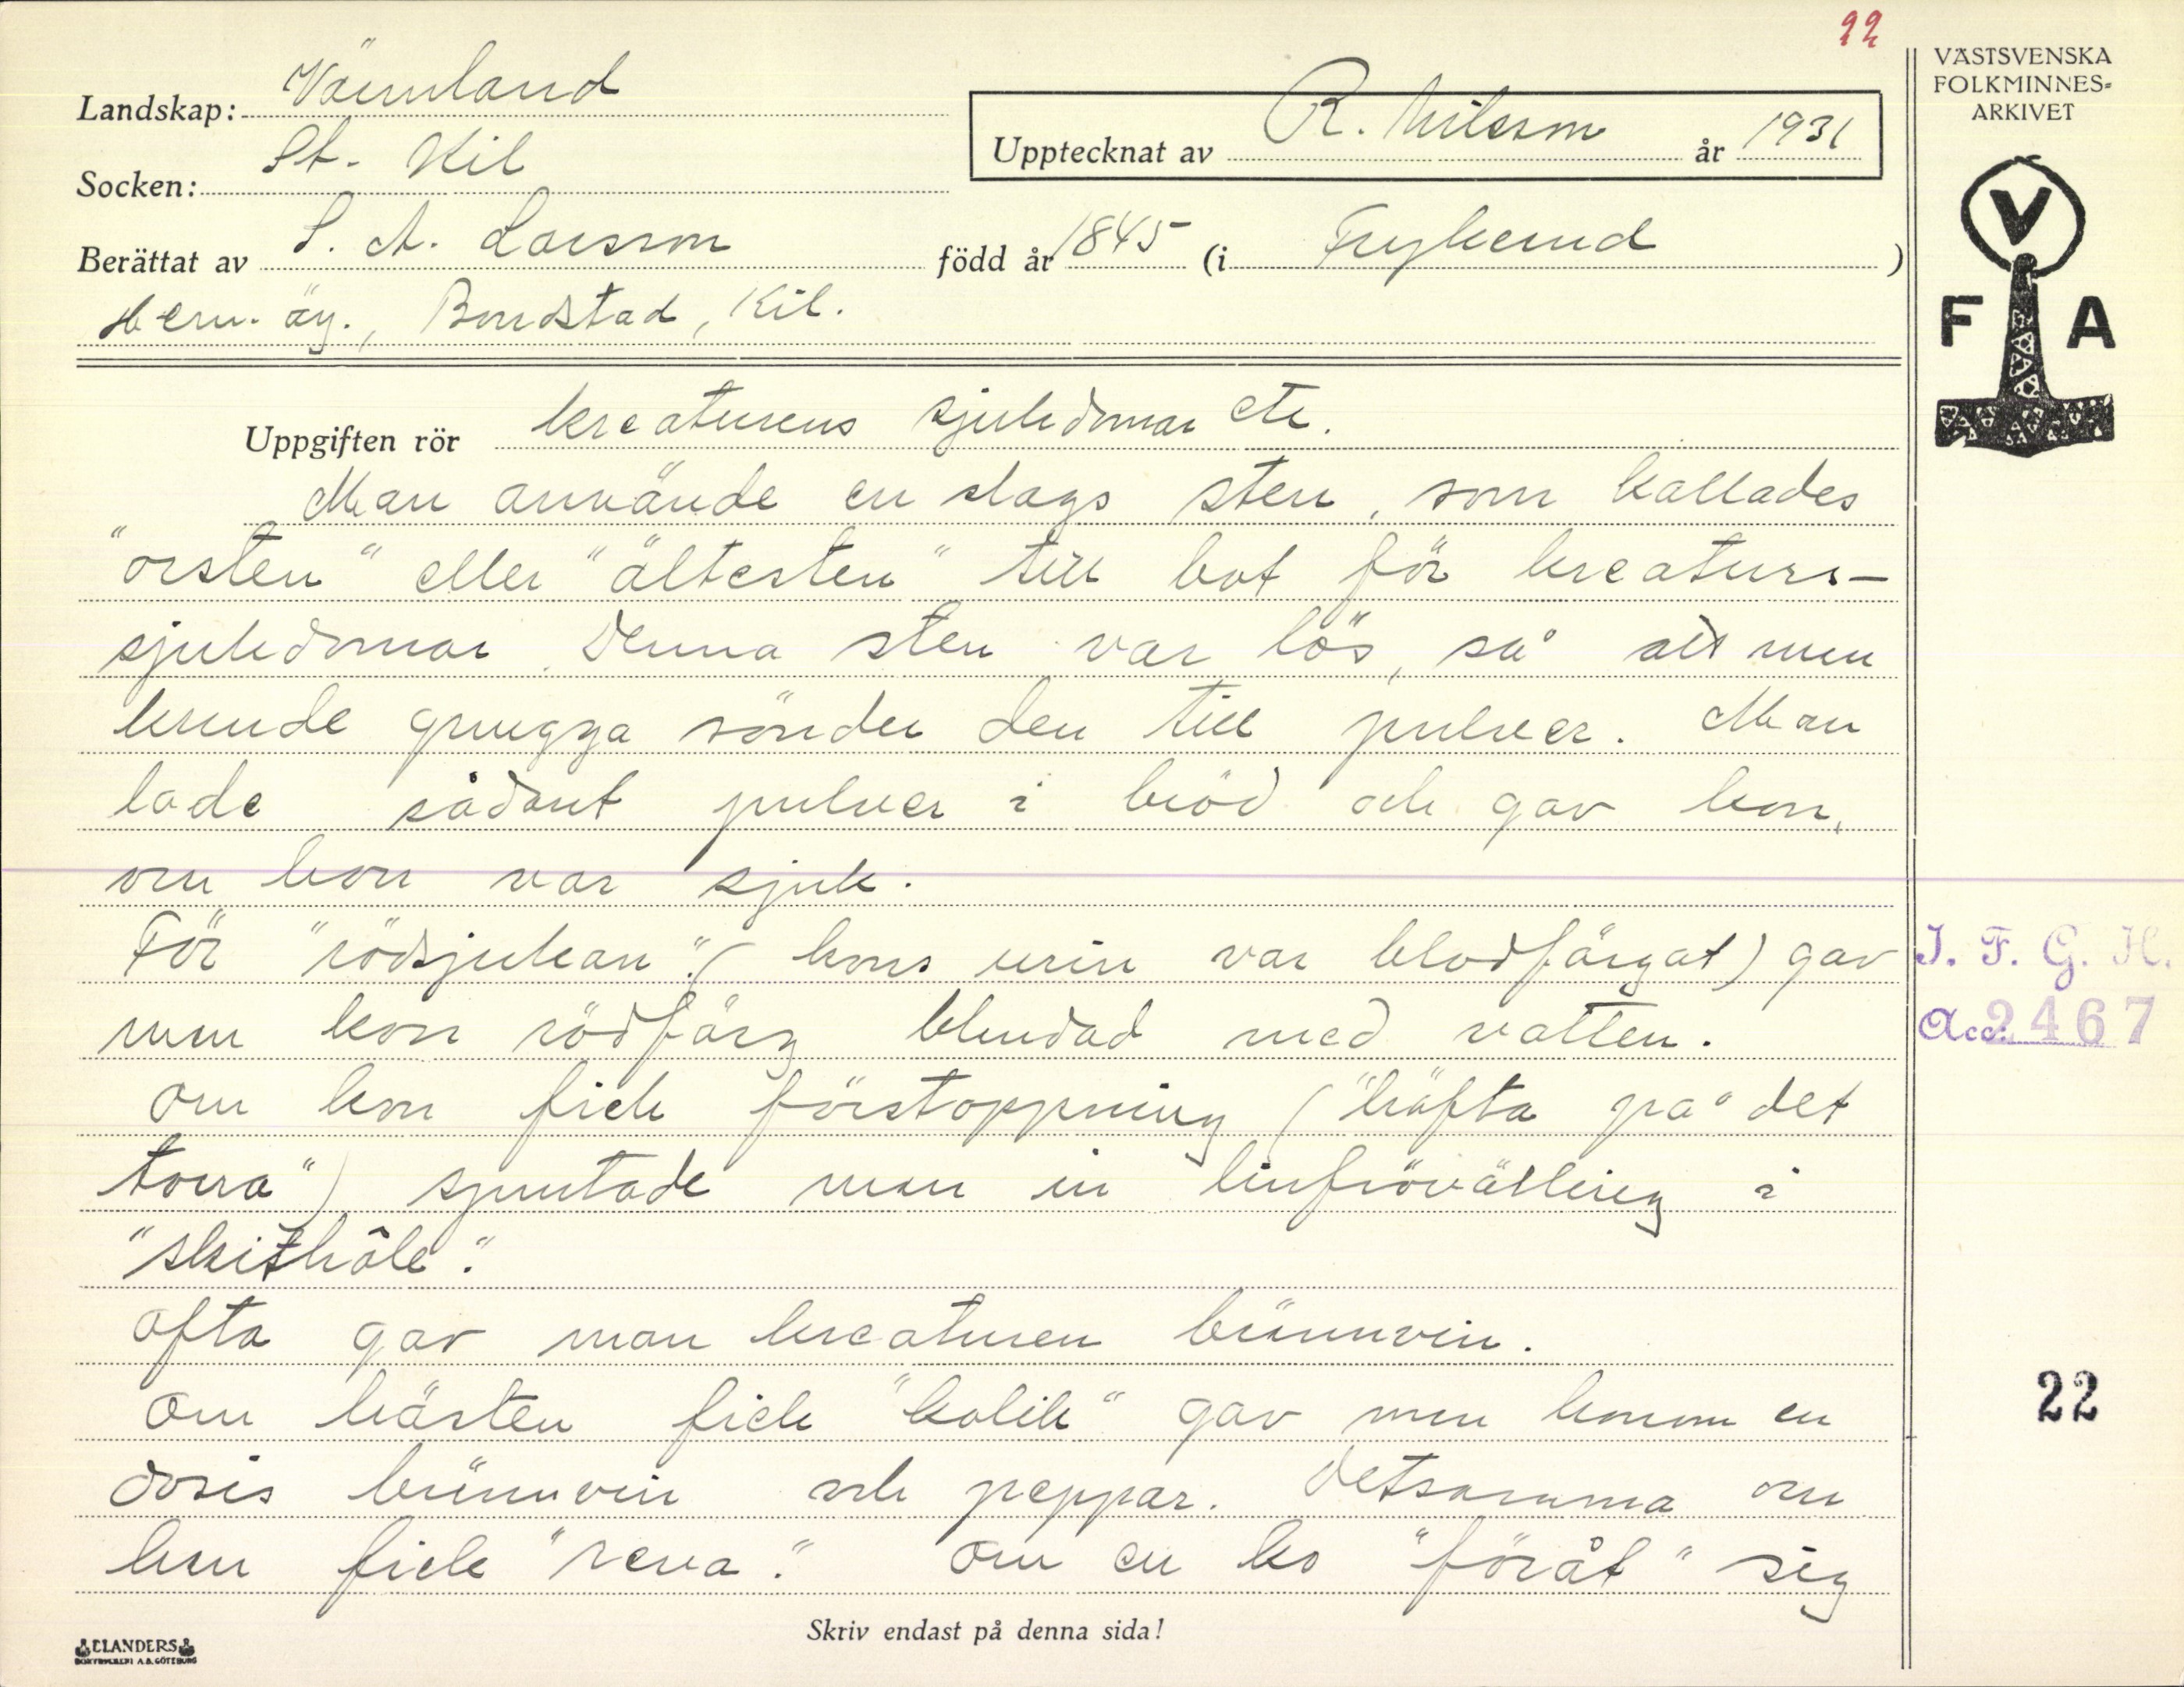 22
VÄSTSVENSKA
FOLKMINNES-
ARKIVET
Landskap: Värmland
Upptecknat av R. Nilsson år 1931
Socken: St. Kil
Berättat av S. A. Larsson född år 1845 (i Frykerud)
Hem. äg., Bondstad, Kil.
V
F A
Uppgiften rör kreaturens sjukdomar etc.
Man använde en slags sten, som kallades
"orsten" eller "ältesten" till bot för kreaturs-
sjukdomar. Denna sten var lös, så att man
kunde gnugga sönder den till pulver. Man
lade sådant pulver i bröd och gav kon,
om hon var sjuk.
För "rödsjukan". (kons urin var blodfärgat) gav
man kon rödfärg blendad med vatten.
Om kon fick förstoppning ("häfta på det
torra") sprutade man in linfrövälling i
"skithôle".
Ofta gav man kreaturen brännvin.
Om hästen fick "kolik" gav man honom en
dosis brännvin och peppar. Detsamma om
han fick "reva". Om en ko "föråt" sig
J. F. G. H.
Acc. 2467
22
Skriv endast på denna sida!
ELANDERS
BOKTRYCKERI A.B. GÖTEBORG